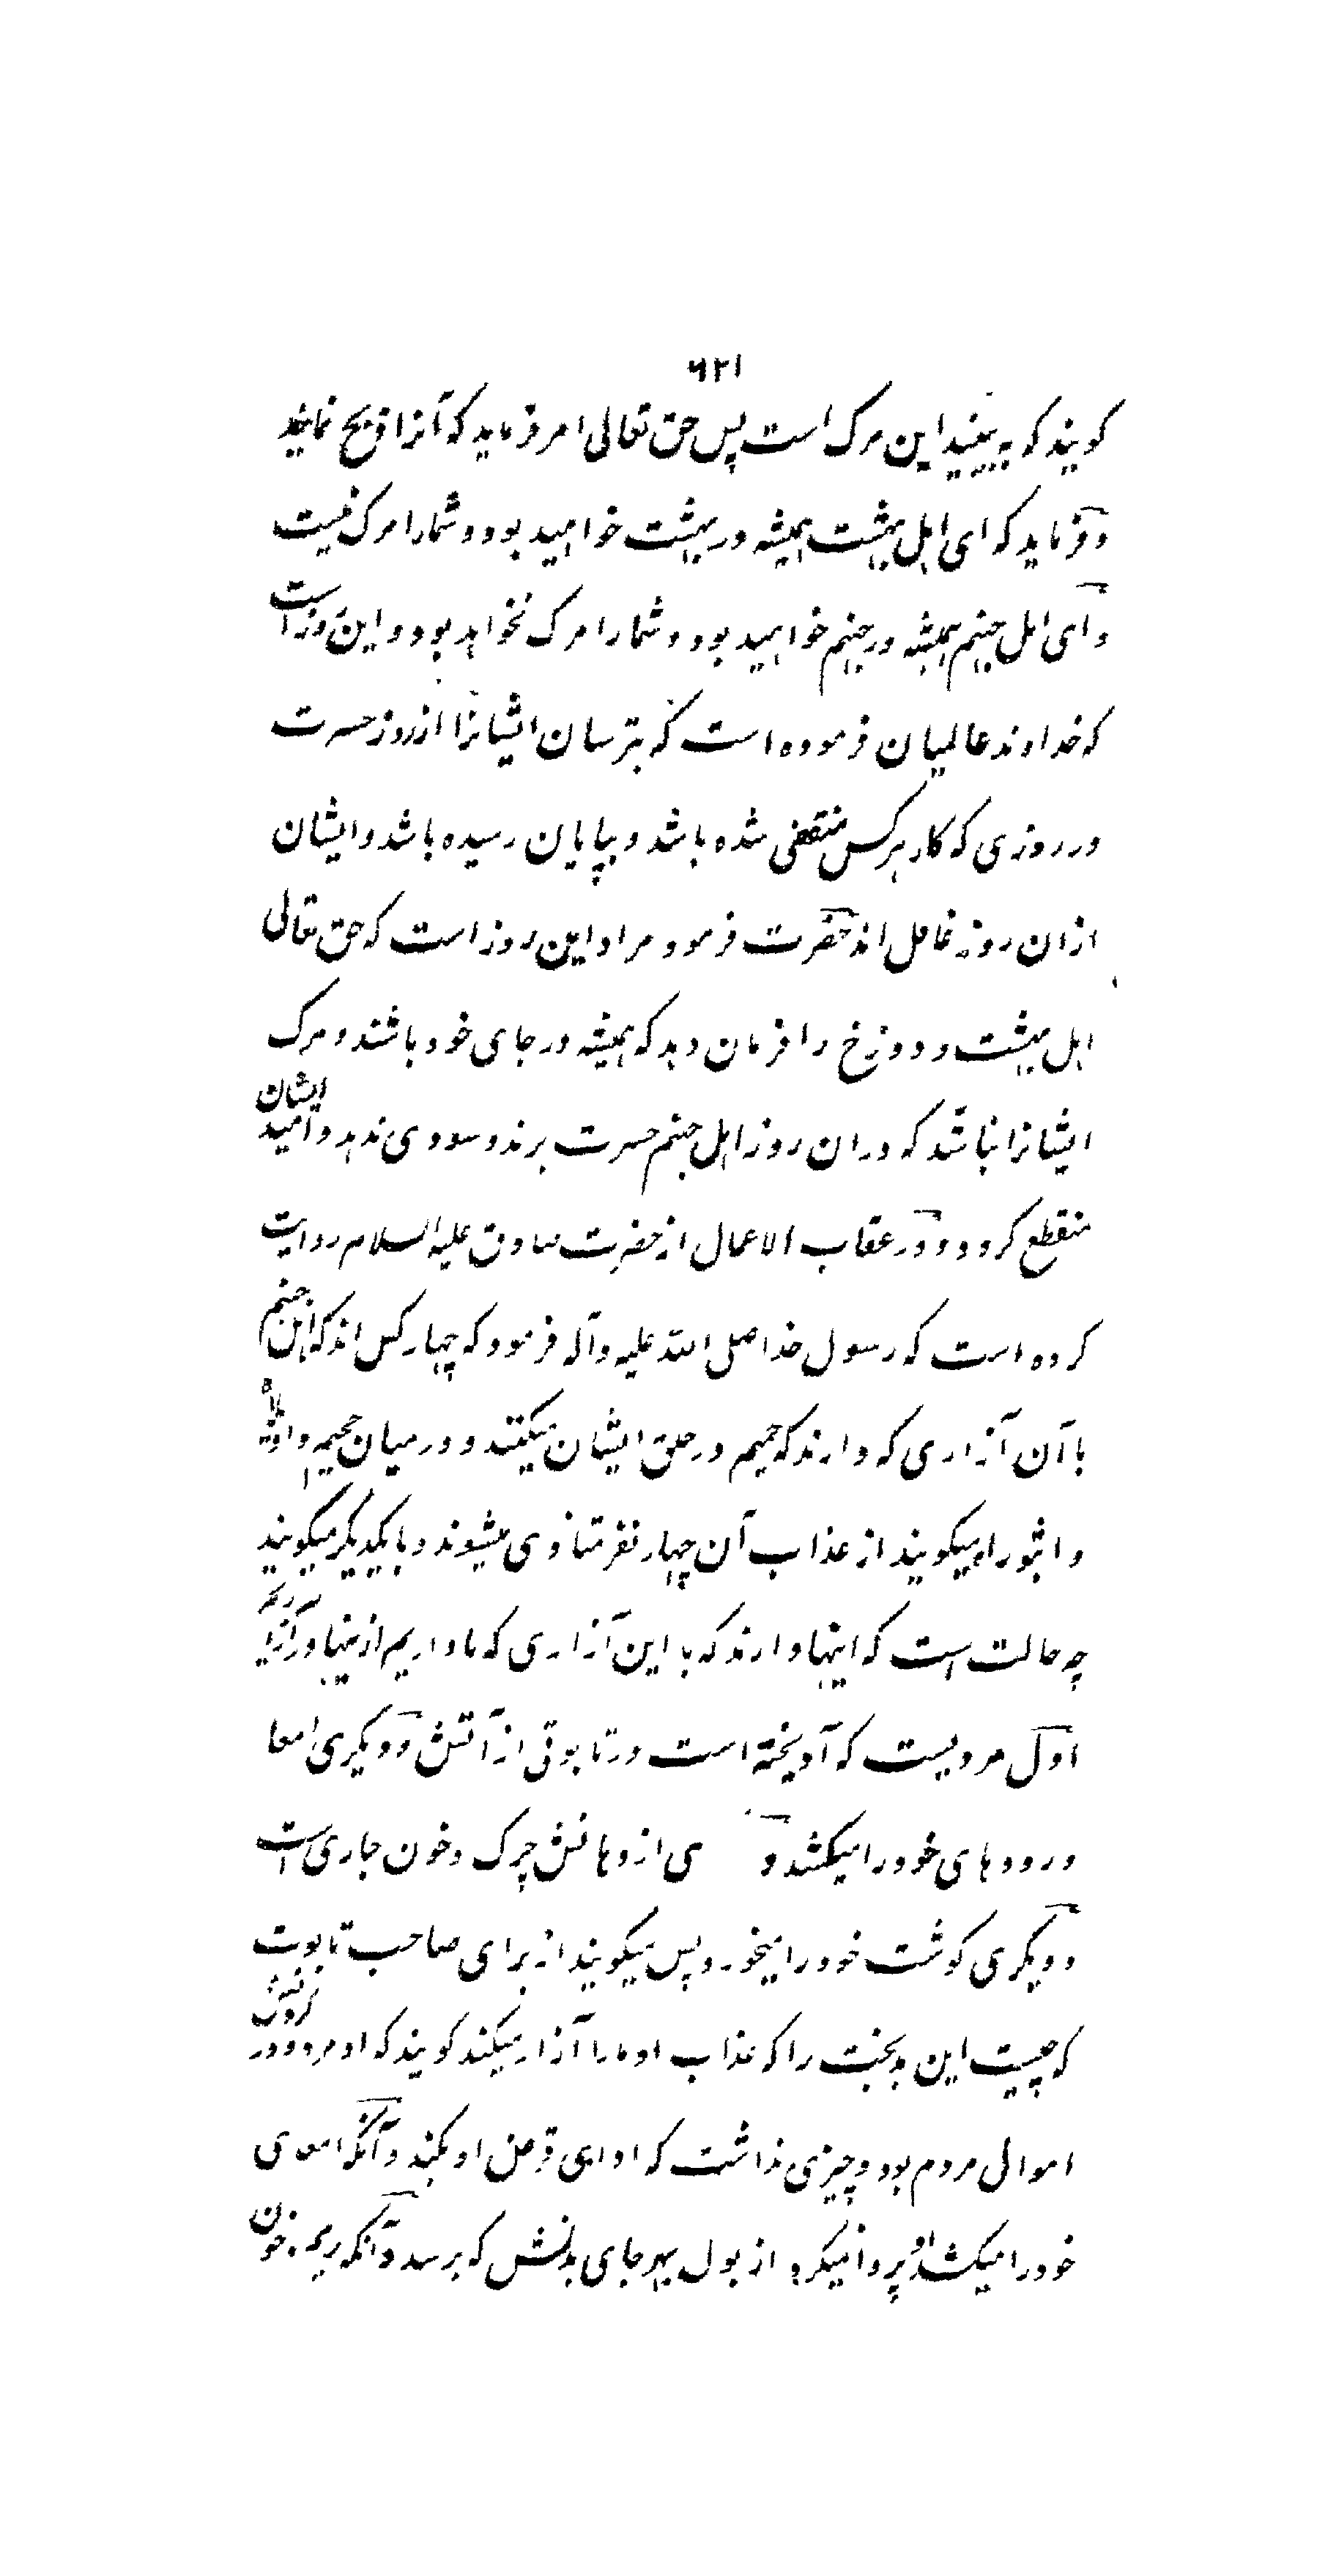 ۶۲۱
کویند که به بینید این مرک است پس حق تعالی امر فرماید که آنرا ذبح نمایند
و فرماید که ای اهل بهشت همیشه در بهشت خواهید بود و شمارا مرک نیست
و ای اهل جهنم همیشه در جهنم خواهید بود و شمارا مرک نخواهد بود و این روز است
که خداوند عالمیان فرموده است که بترسان ایشانرا از روز حسرت
در روزی که کار هرکس منقضی شده باشد و بپایان رسیده باشد و ایشان
ازان روز غافل اند حضرت فرمود مراد این روز است که حق تعالی
اهل بهشت و دوزخ را فرمان دهد که همیشه در جای خود باشند و مرک
ایشانرا نباشد که دران روز اهل جهنم حسرت برند و سودی ندهد و امید ایشان
منقطع کردد و در عقاب الاعمال از حضرت صادق علیه السلام روایت
کرده است که رسول خدا صلی الله علیه و آله فرمود که چهار کس اند که اهل جهنم
با آن آزاری که دارند که حمیم در حلق ایشان میکنند و در میان جحیم واویلاه
و اثبوراه میکویند از عذاب آن چهار نفر متاذی میشوند و با یکدیکر میکویند
چه حالت است که اینها دارند که با این آزاری که ما داریم از اینها در آزاریم
اول مردیست که آویخته است در تابوتی از آتش و دیکری امعا
و رودهای خود را میکشد و ی از دهانش چرک و خون جاری است
و دیکری کوشت خود را میخورد پس میکویند از برای صاحب تابوت
که چیست این بدبخت را که عذاب او ما را آزار میکند کویند که او مرد و در کردنش
اموال مردم بود و چیزی نداشت که ادای قرض او بکنند و آنکه امعای
خود را میکشد او پروا نمیکرد از بول بهر جای بدنش که برسد و آنکه ریم و خون